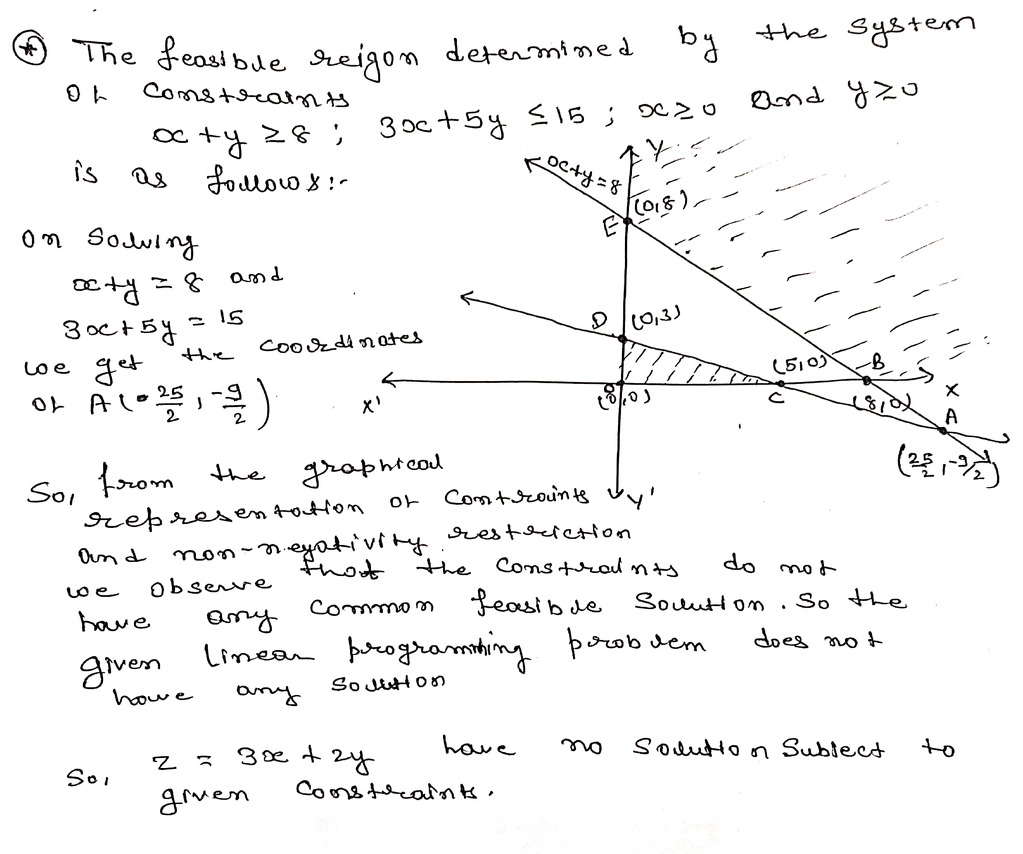 * The feasible reigon determined by the system
of constraints
x + y ≥ 8 ; 3x + 5y ≤ 15 ; x ≥ 0 and y ≥ 0
is as follows :-
On Solving
x + y = 8 and
3x + 5y = 15
we get the coordinates
of A ( 25/2 , -9/2 )
Y
x + y = 8
(0,8)
E
D (0,3)
(5,0)
B
X'
O
(0,0)
C
(8,0)
X
A
(25/2, -9/2)
Y'
So, from the graphical
representation of contraints
and non-negativity restriction
we observe that the constraints do not
have any common feasible solution. So the
given linear programming problem does not
have any solution
So, z = 3x + 2y have no solution Subject to
given constraints.